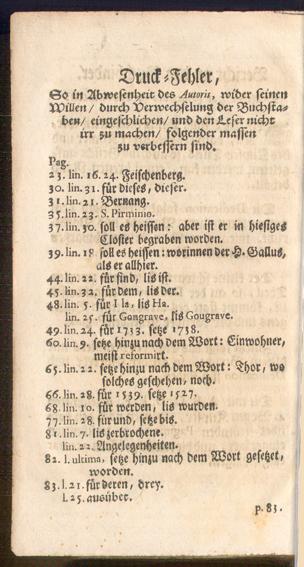 Druck-Fehler,
So in Abwesenheit des Autoris, wider seinen
Willen/ durch Verwechselung der Buchsta-
ben/ eingeschlichen/ und den Leser nicht
irr zu machen/ folgender massen
zu verbessern sind.
Pag.
23. lin. 16. 24. Feischenberg.
30. lin. 31. für dieses, dieser.
31. lin. 21. Bernang.
35. lin. 23. S. Pirminio.
37. lin. 30. soll es heissen: aber ist er in hiesiges
Closter begraben worden.
39. lin. 18. soll es heissen: worinnen der H. Gallus,
als er allhier.
44. lin. 22. für sind, lis ist.
45. lin. 32. für dem, lis der.
48. lin. 5. für I la, lis Ha.
lin. 25. für Gangrave, lis Gougrave.
49. lin. 24. für 1733. setze 1738.
60. lin. 9. setze hinzu nach dem Wort: Einwohner,
meist reformirt.
65. lin. 22. setze hinzu nach dem Wort: Thor, wo
solches geschehen, noch.
66. lin. 28. für 1539. setze 1527.
68. lin. 10. für werden, lis wurden.
77. lin. 28. für und, setze bis.
81. lin. 7. lis zerbrochene.
lin. 22. Angelegenheiten.
82. l. ultima, setze hinzu nach dem Wort gesetzet,
worden.
83. l. 21. für deren, drey.
l. 25. ausübet.
p. 83.